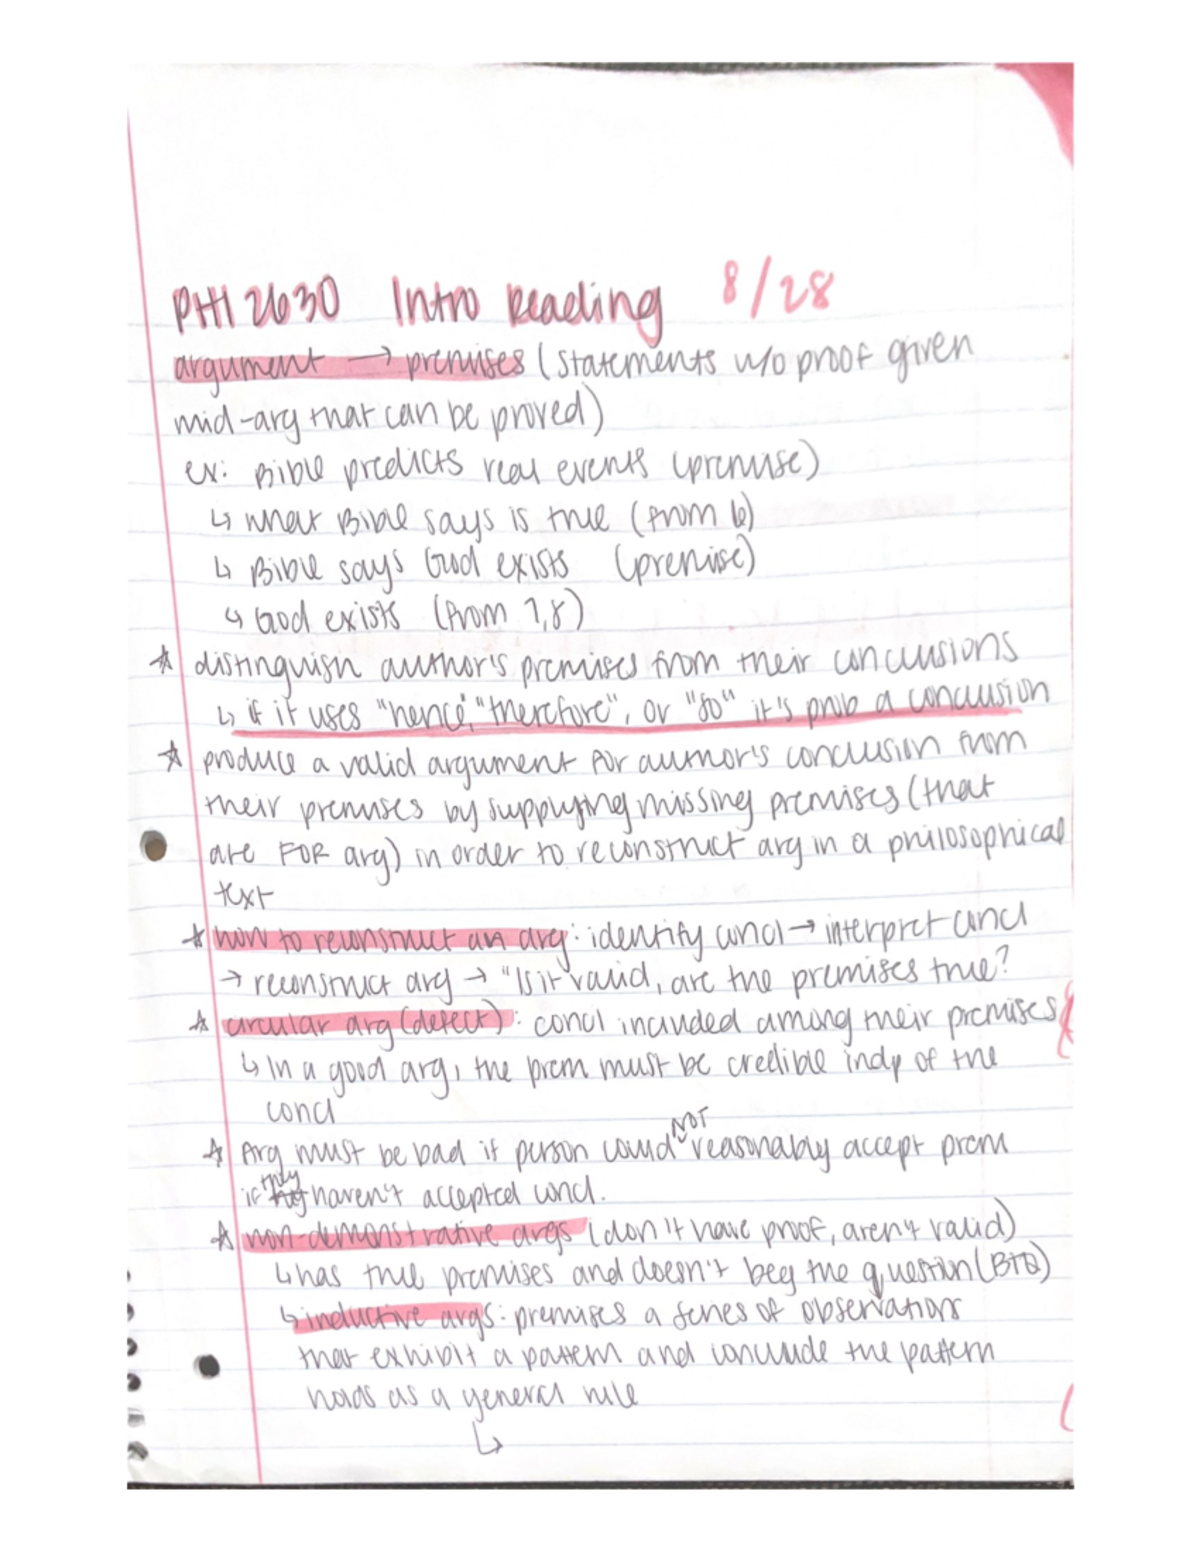 PHI 2630 Intro Reading 8/28
argument → premises (statements w/o proof given
mid-arg that can be proved)
ex: Bible predicts real events (premise)
↳ what Bible says is true (from 6)
↳ Bible says God exists (premise)
↳ God exists (from 7,8)
☆ distinguish author's premises from their conclusions
↳ if it uses "hence", "therefore", or "so" it's prob a conclusion
☆ produce a valid argument for author's conclusion from
their premises by supplying missing premises (that
are FOR arg) in order to reconstruct arg in a philosophical
text
☆ how to reconstruct an arg: identify concl → interpret concl
→ reconstruct arg → "Is it valid, are the premises true?
☆ circular arg (defect): concl included among their premises
↳ In a good arg, the prem must be credible indp of the
concl
☆ Arg must be bad if person could NOT reasonably accept prem
if they haven't accepted concl.
☆ non-demonstrative args (don't have proof, aren't valid)
↳ has true premises and doesn't beg the question (BTQ)
↳ inductive args: premises a series of observations
that exhibit a pattern and conclude the pattern
holds as a general rule
↳